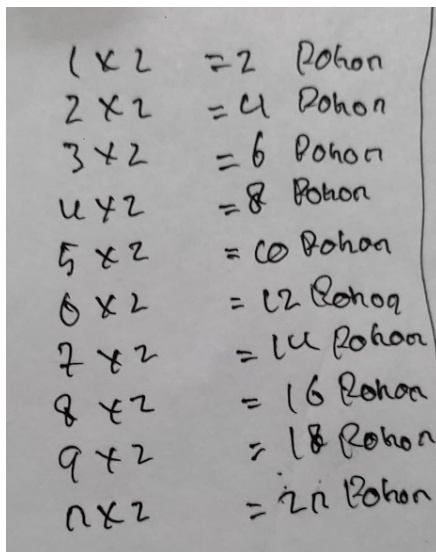 1 x 2 = 2 Pohon
2 x 2 = 4 Pohon
3 x 2 = 6 Pohon
4 x 2 = 8 Pohon
5 x 2 = 10 Pohon
6 x 2 = 12 Pohon
7 x 2 = 14 Pohon
8 x 2 = 16 Pohon
9 x 2 = 18 Pohon
n x 2 = 2n Pohon